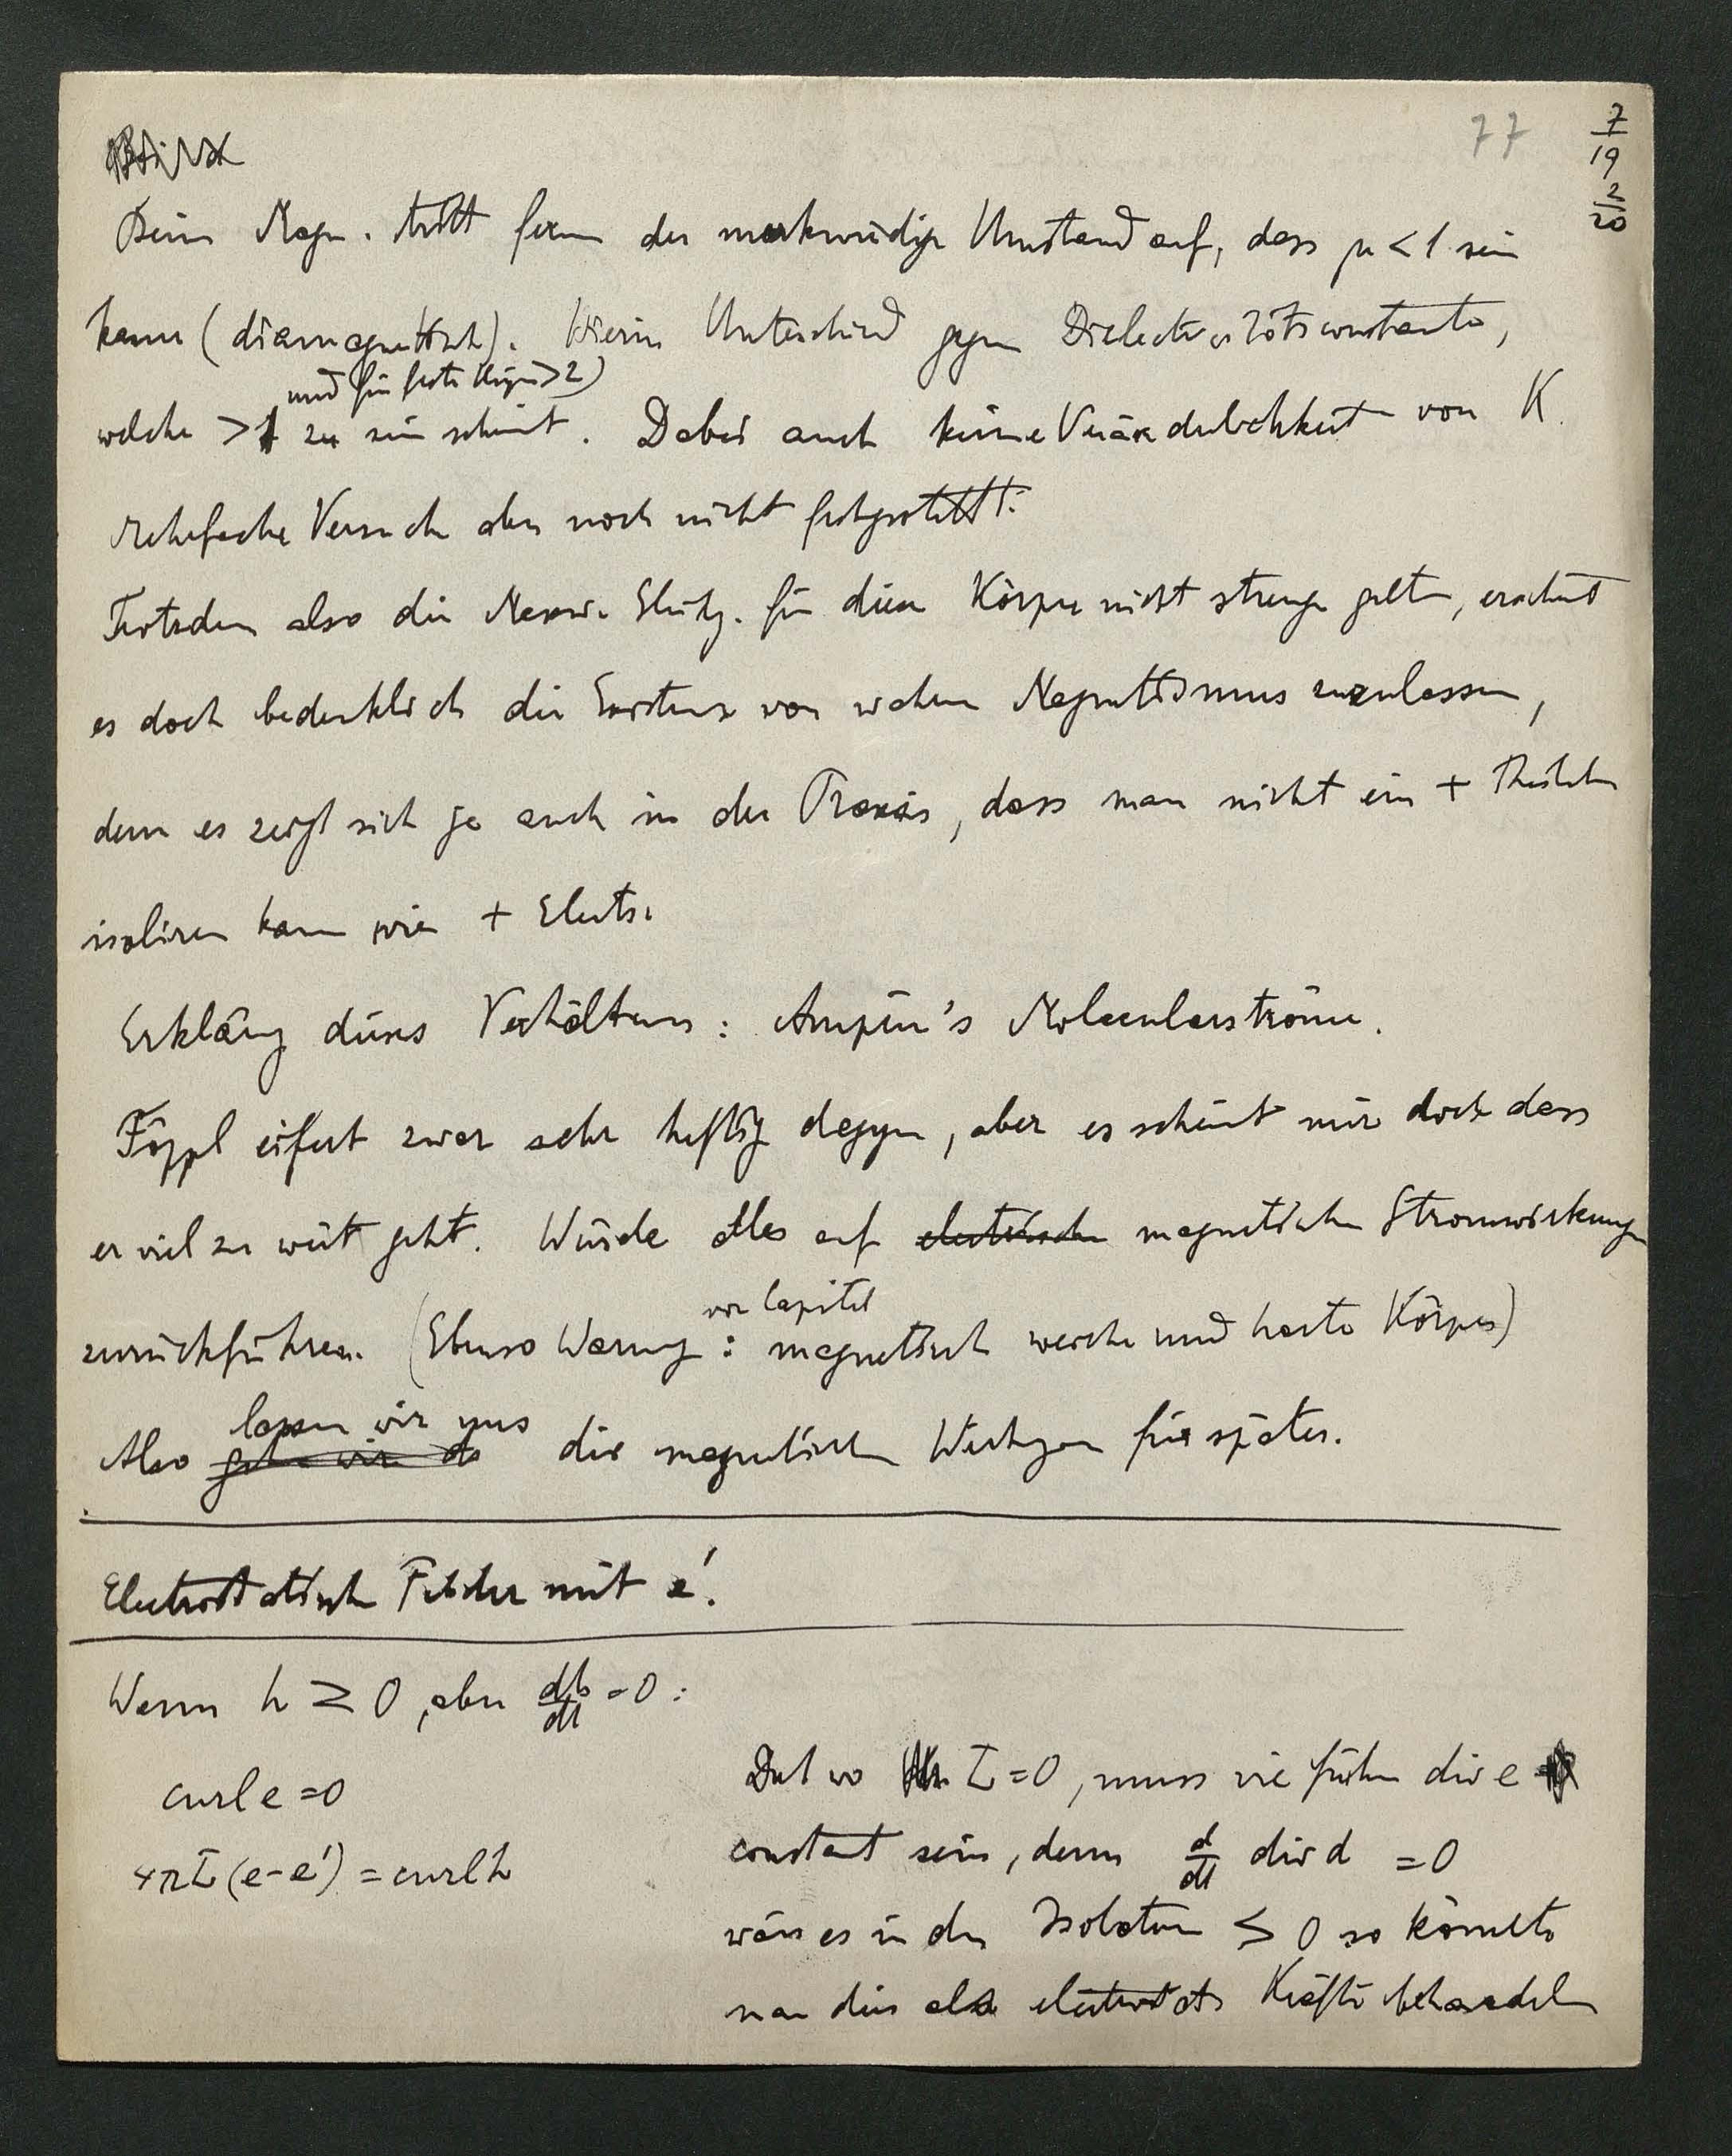 77
7/19
2/20
Beim Magn. tritt ferner der merkwürdige Umstand auf, dass μ < 1 sein
kann (diamagnetisch). Hierin Unterschied gegen Dielectricitätsconstante,
und für feste Körper > 2)
welche > 1 zu sein scheint. Dabei auch keine Veränderlichkeit von K
mehrfache Versuche aber noch nicht festgestellt.
Trotzdem also die Maxw. Gleichg. für diese Körper nicht strenge gelten, erscheint
es doch bedenklich die Existenz von wahrem Magnetismus zuzulassen,
denn es zeigt sich ja auch in der Praxis, dass man nicht ein + Theilchen
isoliren kann wie + Electr.
Erklärung dieses Verhaltens: Ampère's Molecularströme.
Föppl eifert zwar sehr heftig dagegen, aber es scheint mir doch dass
er viel zu weit geht. Würde alles auf electrische magnetische Stromwirkungen
vor Capitel
zurückführen. (Ebenso Warnung: magnetisch weiche und harte Körper)
lassen wir uns
Also gehen wir da die magnetischen Wirkungen für später.
Electrostatische Felder mit e'.
Wenn h ≷ 0, aber db/dt = 0:
curl e = 0
4πL(e-e') = curl h
Dort wo L = 0, muss wie früher div e
constant sein, denn d/dt div d = 0
wäre es in den Isolatoren ≶ 0 so könnte
man dies als electrostat. Kräfte behandeln